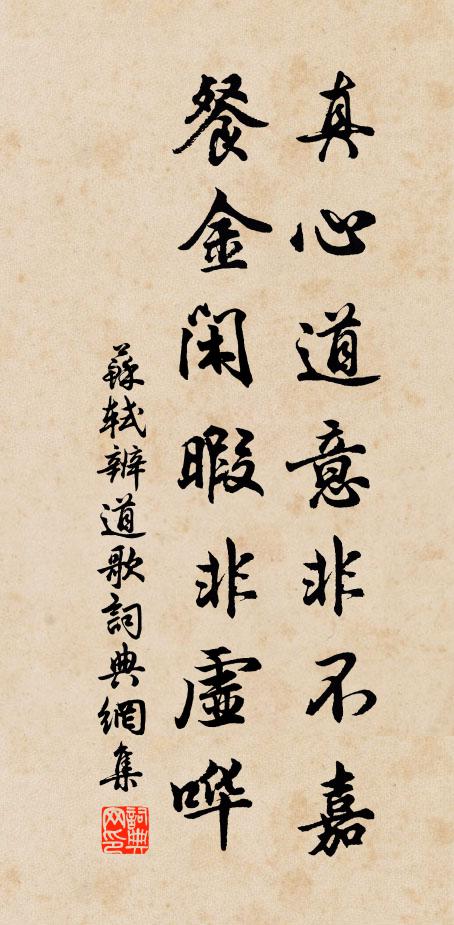 真心道意非不嘉
餐金闲暇非虛哗
蘇軾辨道歌詞典網集
詞典網印